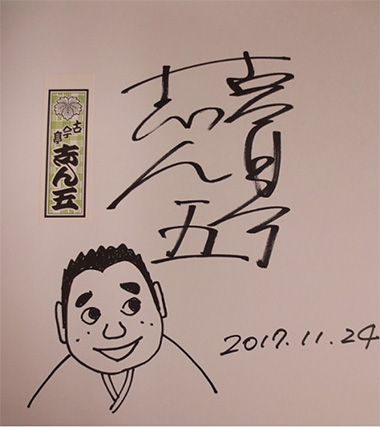 古今亭
志ん五
古今亭
志ん五
2017.11.24